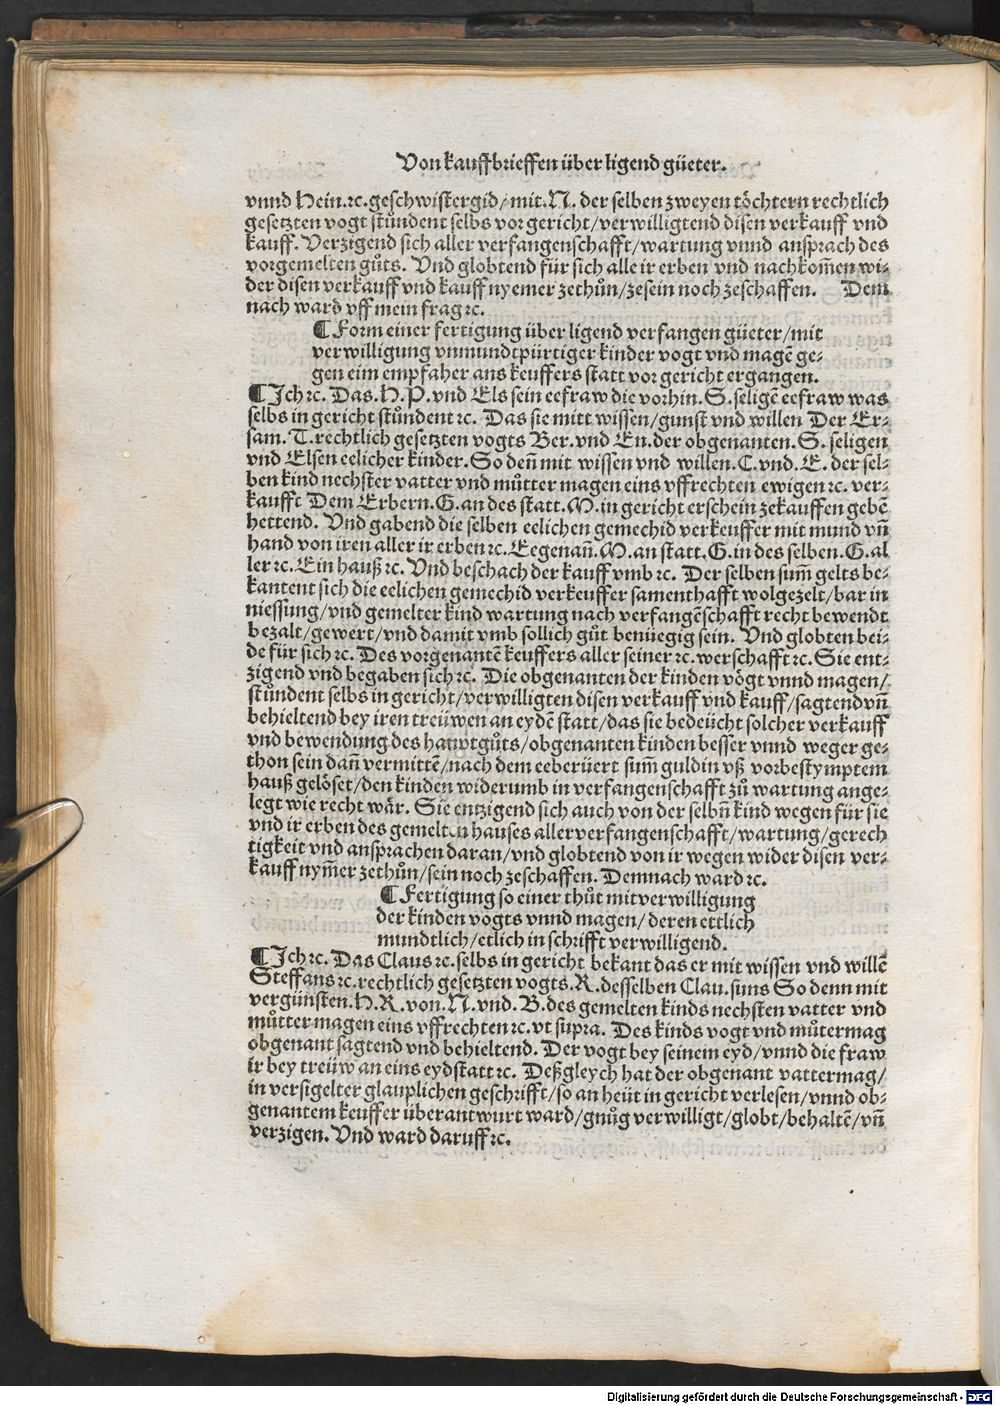 Von kauffbrieffen über ligend güeter.
vnnd Hein.ꝛc.geschwistergid/mit.N. der selben zweyen töchtern rechtlich
gesetzten vogt stůndent selbs vor gericht/verwilligtend disen verkauff vnd
kauff. Verzigend sich aller verfangenschafft/wartung vnnd ansprach des
vorgemelten gůts. Vnd globtend für sich alle ir erben vnd nachkom̃en wi⸗
der disen verkauff vnd kauff nyemer zethůn/zesein noch zeschaffen. Dem
nach ward vff mein frag ꝛc.
¶ Form einer fertigung über ligend verfangen güeter/mit
verwilligung vnmundtpürtiger kinder vogt vnd magẽ ge⸗
gen eim empfaher ans keuffers statt vor gericht ergangen.
¶ Jch ꝛc. Das.H.P.vnd Els sein eefraw die vorhin.S.seligẽ eefraw was
selbs in gericht stůndent ꝛc. Das sie mitt wissen/gunst vnd willen Der Er⸗
sam.T.rechtlich gesetzten vogts Ber.vnd En.der obgenanten.S.seligen
vnd Elsen eelicher kinder.So den̄ mit wissen vnd willen.C.vnd.E.der sel⸗
ben kind nechster vatter vnd můtter magen eins vffrechten ewigen ꝛc. ver⸗
kaufft Dem Erbern.G.an des statt.M.in gericht erschein zekauffen gebẽ
hettend. Vnd gabend die selben eelichen gemechid verkeuffer mit mund vn̄
hand von iren aller ir erben ꝛc. Eegenan̄.M.an statt.G.in des selben.G.al
ler ꝛc. Ein hauß ꝛc. Vnd beschach der kauff vmb ꝛc. Der selben sum̃ gelts be⸗
kantent sich die eelichen gemechid verkeuffer samenthafft wolgezelt/bar in
niessung/vnd gemelter kind wartung nach verfangẽschafft recht bewendt
bezalt/gewert/vnd damit vmb sollich gůt benüegig sein. Vnd globten bei⸗
de für sich ꝛc. Des vorgenantẽ keuffers aller seiner ꝛc.werschafft ꝛc. Sie ent⸗
zigend vnd begaben sich ꝛc. Die obgenanten der kinden vögt vnnd magen/
stůndent selbs in gericht/verwilligten disen verkauff vnd kauff/sagtend vn̄
behieltend bey iren treüwen an eydẽ statt/das sie bedeücht solcher verkauff
vnd bewendung des hauptgůts/obgenanten kinden besser vnnd weger ge⸗
thon sein dan̄ vermittẽ/nach dem eeberüert sum̃ guldin vß vorbestymptem
hauß gelöset/den kinden widerumb in verfangenschafft zů wartung ange⸗
legt wie recht wär. Sie entzigend sich auch von der selbn̄ kind wegen für sie
vnd ir erben des gemelten hauses aller verfangenschafft/wartung/gerech
tigkeit vnd ansprachen daran/vnd globtend von ir wegen wider disen ver⸗
kauff nym̃er zethůn/sein noch zeschaffen. Demnach ward ꝛc.
¶ Fertigung so einer thůt mit verwilligung
der kinden vogts vnnd magen/deren ettlich
mundtlich/etlich in schrifft verwilligend.
¶ Jch ꝛc. Das Claus ꝛc.selbs in gericht bekant das er mit wissen vnd willẽ
Steffans ꝛc.rechtlich gesetzten vogts.R.desselben Clau.suns So denn mit
vergünsten.H.R.von.N.vnd.B.des gemelten kinds nechsten vatter vnd
můtter magen eins vffrechten ꝛc.vt supra. Des kinds vogt vnd můtermag
obgenant sagtend vnd behieltend. Der vogt bey seinem eyd/vnnd die fraw
ir bey treüw an eins eydstatt ꝛc. Deßgleych hat der obgenant vattermag/
in versigelter glauplichen geschrifft/so an heüt in gericht verlesen/vnnd ob⸗
genantem keuffer überantwurt ward/gnůg verwilligt/globt/behaltẽ/vn̄
verzigen. Vnd ward daruff ꝛc.
Digitalisierung gefördert durch die Deutsche Forschungsgemeinschaft - DFG